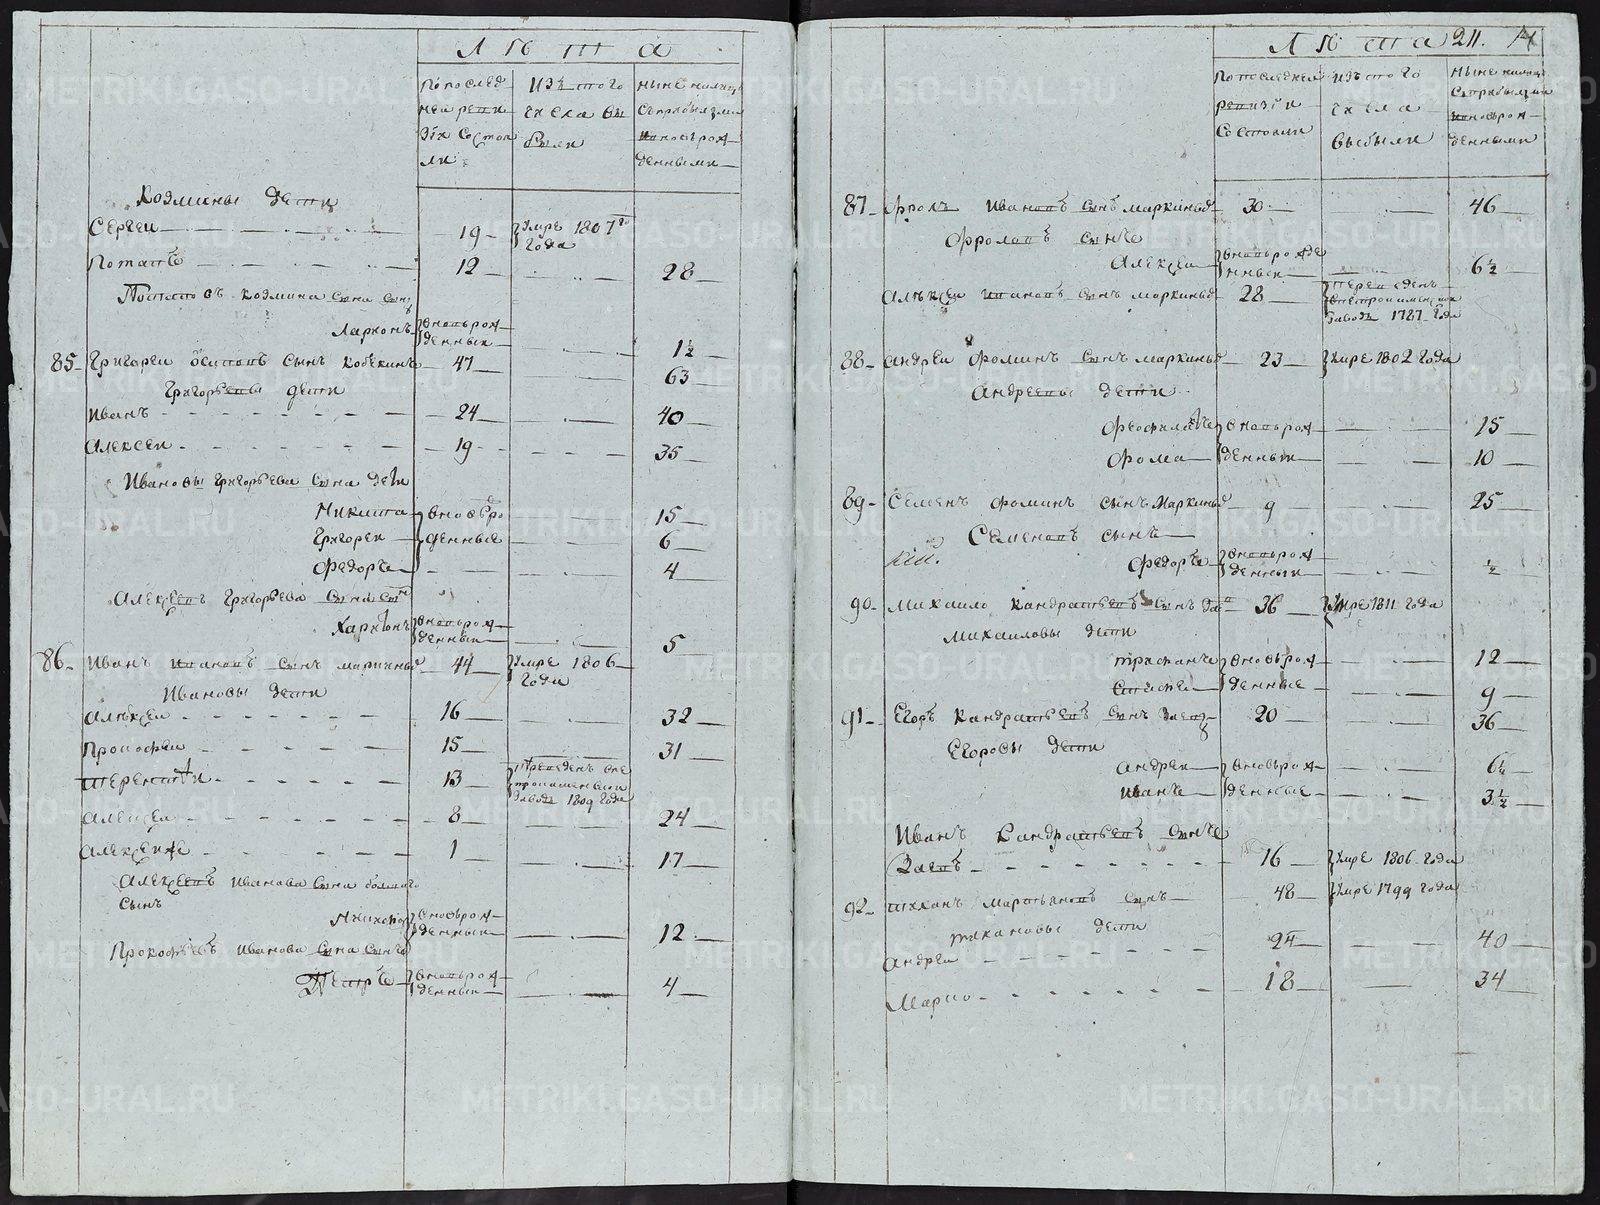 Лѣта
По послед
ней реви
зіи состоя
ли
изъ того
числа вы
были
ныне налицо
съ прибылыми
и новорож
денными
Козмины дети
Сергеи 19 умре 1807го
года
Потапъ 12 28
Потапов Козмина сына сынъ
Ларионъ вновьрож
денныи 1½
85 Григореи Осиповъ сынъ 47 63
Григорьевы дети
Иванъ 24 40
Алексеи 19 35
Ивановы Григорьева сына дети
Никита вновьро 15
Григореи жденные 6
Федоръ 4
Алексеевъ Григорьева сына сынъ
Харитонъ вновьрож
денныи 5
86 Иванъ Ивановъ сынъ 44 умре 1806
года
Ивановы дети
Алексеи 16 32
Прокофеи 15 31
Терентеи 13 переведенъ вне
виопаименскои
заводъ 1809 года
Алексеи 8 24
Александръ 1 17
Алексеевъ Иванова сына большаго
сынъ
вновьрож
денныи 12
Прокофьевъ Иванова сына сынъ
Петръ вновьрож
денныи 4
Лѣта 211.
По последней
ревизіи
состояли
изъ того
числа
выбыли
ныне налицо
съ прибылыми
и новорож
денными
87 Фролъ Ивановъ сынъ Маркиныхъ 30 46
Фроловъ сынъ
Алексеи вновьрожде
нныи 6½
Алексеи Ивановъ сынъ Маркиныхъ 28 переведенъ
заводъ 1787 года
88 Андреи Фоминъ сынъ Маркиныхъ 23 умре 1802 года
Андреевы дети
Феофилактъ вновьрож 15
Фома денныи 10
89 Семенъ Фоминъ сынъ Маркиныхъ 9 25
Семеновъ сынъ
Федоръ вновьрож
денныи ½
90 Михаило Кандратьевъ сынъ 36 умре 1811 года
Михаиловы дети
вновьрож 12
денные 9
91 Егоръ Кандратьевъ сынъ 20 36
Егоровы дети
Андреи вновьрож 6½
Иванъ денные 3½
Иванъ Кандратьевъ сынъ
Заевъ 16 умре 1806 года
92 Тиханъ Мартьяновъ сынъ 48 умре 1799 года
Тихановы дети
Андреи 24 40
Марко 18 34
METRIKI.GASO-URAL.RU